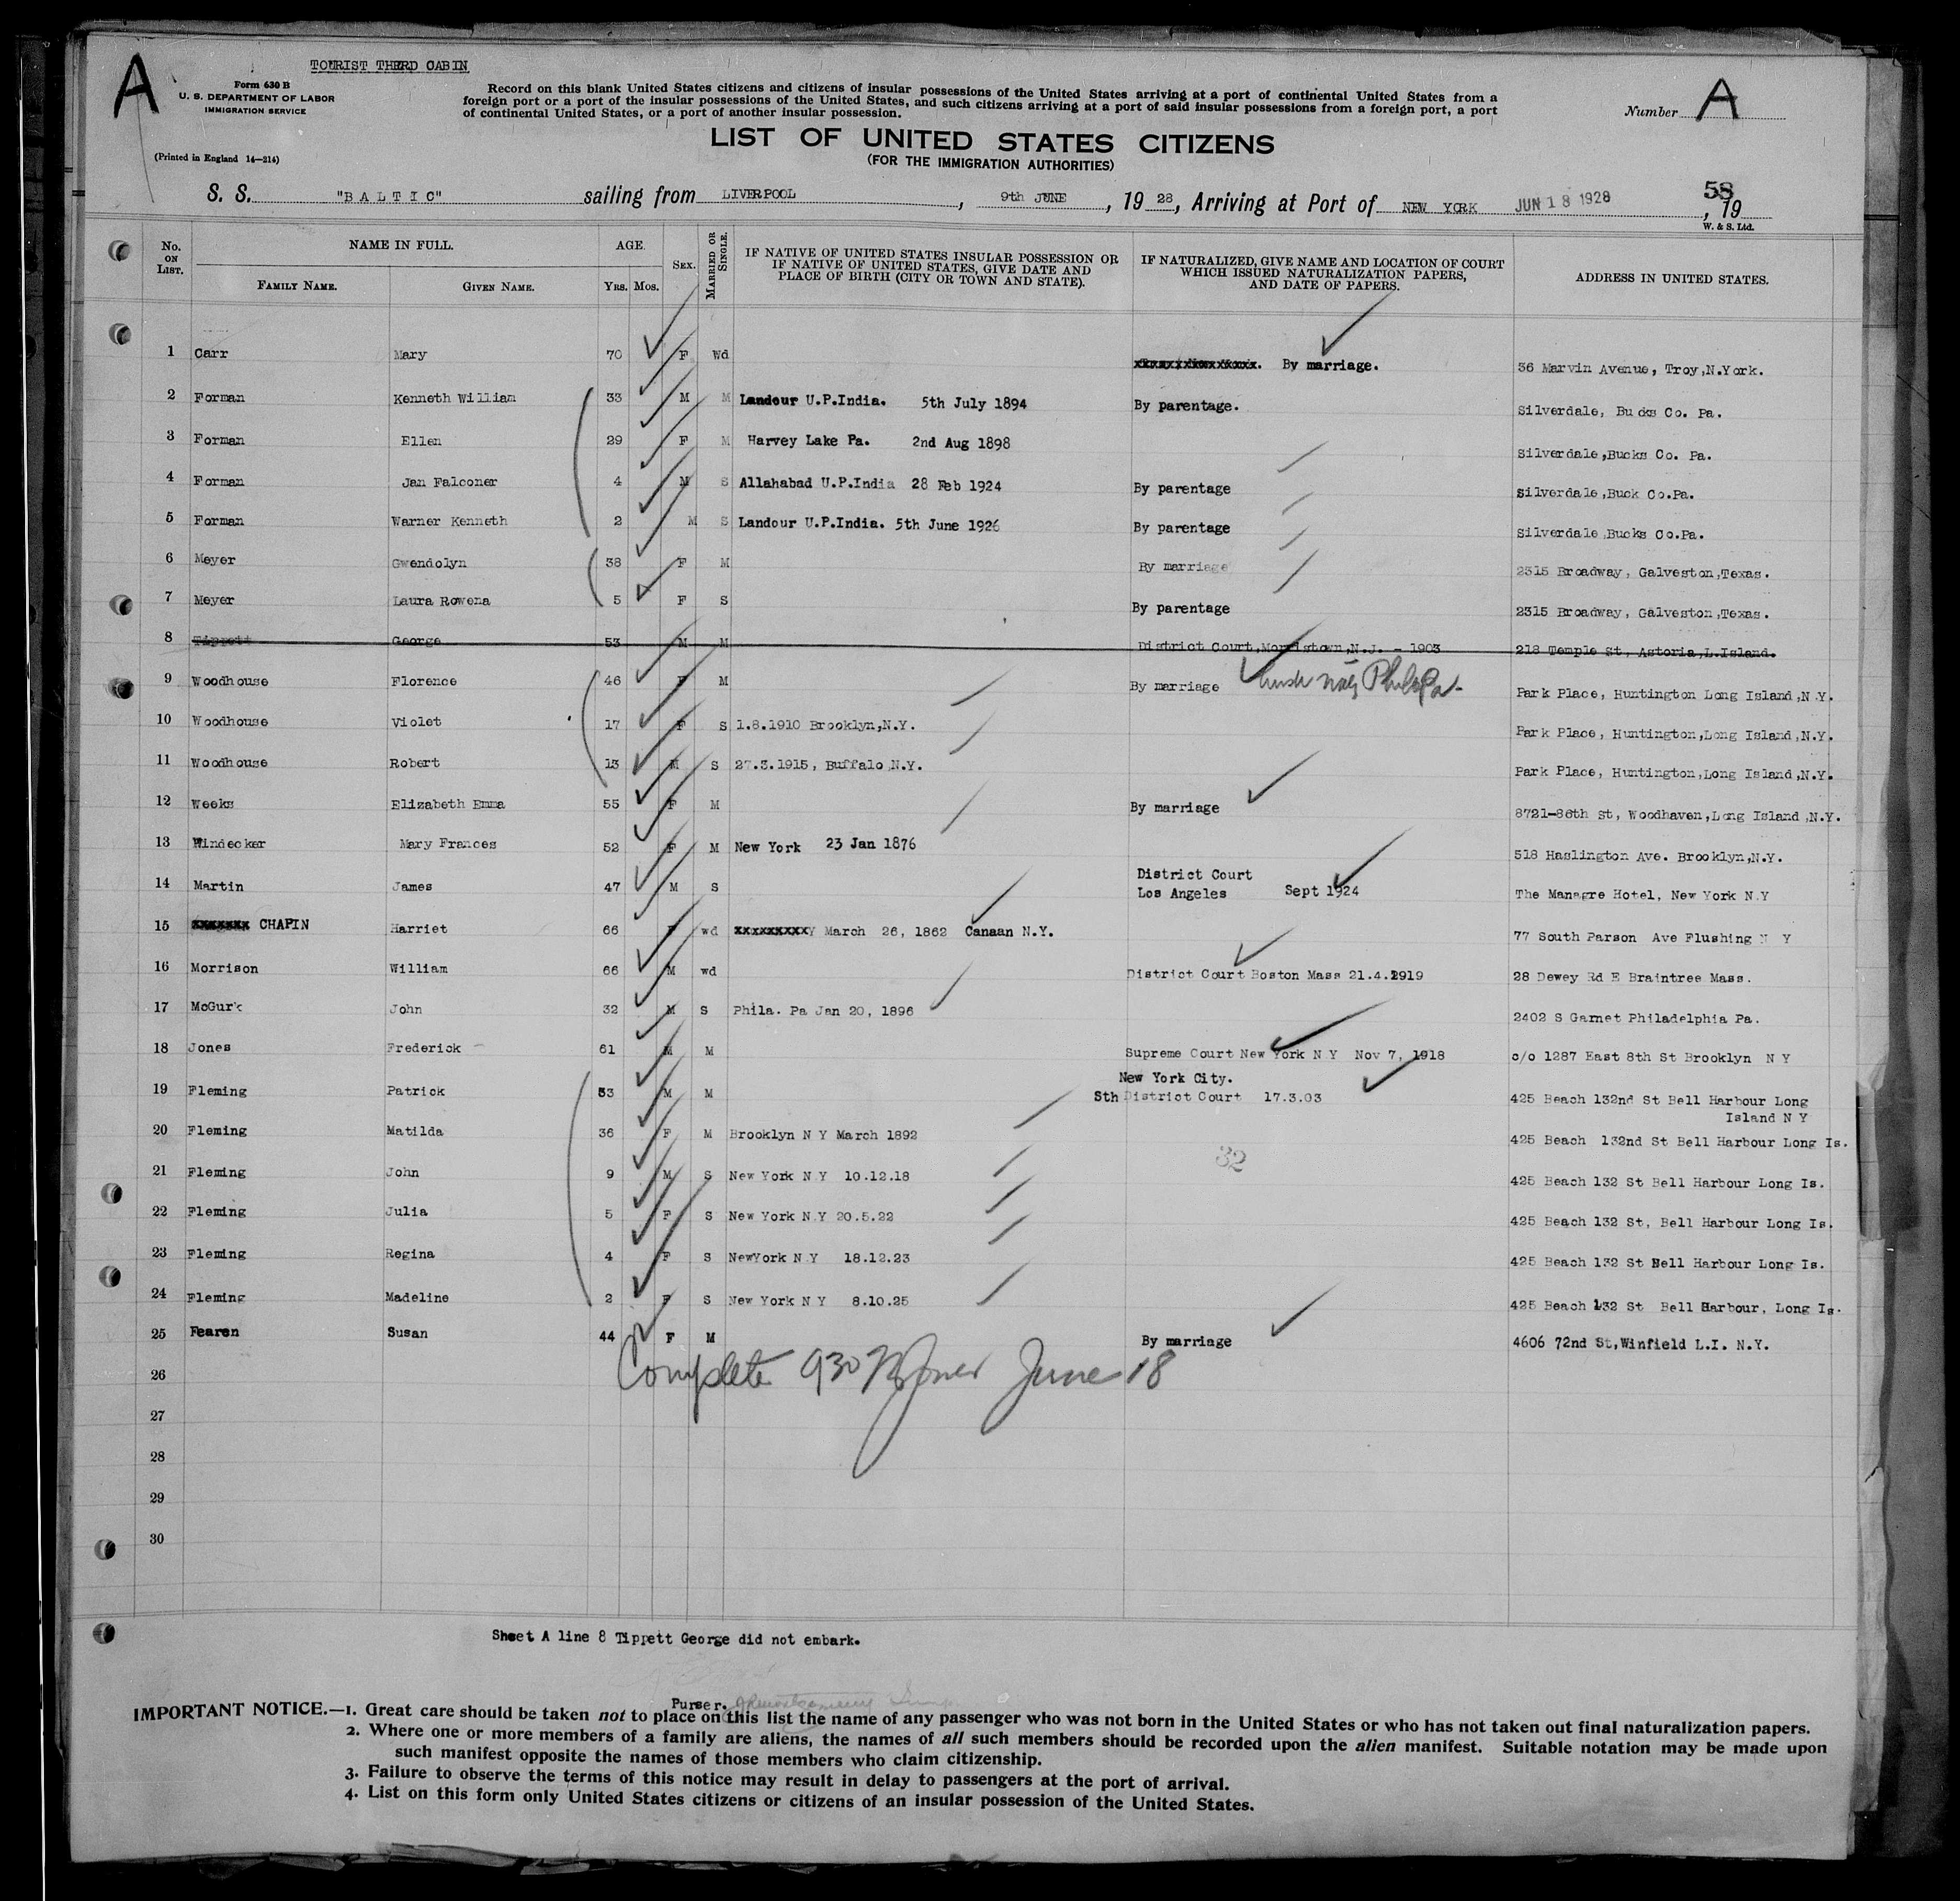 A
TOURIST THIRD CABIN
Form 630 B
U. S. DEPARTMENT OF LABOR
IMMIGRATION SERVICE
(Printed in England 14—214)
Record on this blank United States citizens and citizens of insular possessions of the United States arriving at a port of continental United States from a
foreign port or a port of the insular possessions of the United States, and such citizens arriving at a port of said insular possessions from a foreign port, a port
of continental United States, or a port of another insular possession.
Number A
LIST OF UNITED STATES CITIZENS
(FOR THE IMMIGRATION AUTHORITIES)
58
S. S. "BALTIC" sailing from LIVERPOOL, 9th JUNE, 19 28, Arriving at Port of NEW YORK JUN 18 1928, 19
W. & S. Ltd.
No. ON LIST. NAME IN FULL. FAMILY NAME. GIVEN NAME. AGE. YRS. MOS. SEX. MARRIED OR SINGLE. IF NATIVE OF UNITED STATES INSULAR POSSESSION OR IF NATIVE OF UNITED STATES, GIVE DATE AND PLACE OF BIRTH (CITY OR TOWN AND STATE). IF NATURALIZED, GIVE NAME AND LOCATION OF COURT WHICH ISSUED NATURALIZATION PAPERS, AND DATE OF PAPERS. ADDRESS IN UNITED STATES.
1 Carr Mary 70 F Wd By marriage. 36 Marvin Avenue, Troy,N.York.
2 Forman Kenneth William 33 M M Landour U.P.India. 5th July 1894 By parentage. Silverdale, Bucks Co. Pa.
3 Forman Ellen 29 F M Harvey Lake Pa. 2nd Aug 1898 Silverdale,Bucks Co. Pa.
4 Forman Jan Falconer 4 M S Allahabad U.P.India 28 Feb 1924 By parentage Silverdale,Buck Co.Pa.
5 Forman Warner Kenneth 2 M S Landour U.P.India. 5th June 1926 By parentage Silverdale Bucks Co.Pa.
6 Meyer Gwendolyn 38 F M By marriage 2315 Broadway, Galveston,Texas.
7 Meyer Laura Rowena 5 F S By parentage 2315 Broadway, Galveston,Texas.
8 Tippett George 53 M M District Court,Morristown,N.J. - 1903 218 Temple St, Astoria,L.Island.
9 Woodhouse Florence 46 F M By marriage Phila Pa. Park Place, Huntington Long Island,N.Y.
10 Woodhouse Violet 17 F S 1.8.1910 Brooklyn,N.Y. Park Place, Huntington,Long Island,N.Y.
11 Woodhouse Robert 13 M S 27.3.1915, Buffalo N.Y. Park Place, Huntington,Long Island,N.Y.
12 Weeks Elizabeth Emma 55 F M By marriage 8721-86th St, Woodhaven,Long Island,N.Y.
13 Windecker Mary Frances 52 F M New York 23 Jan 1876 518 Haslington Ave. Brooklyn,N.Y.
14 Martin James 47 M S District Court Los Angeles Sept 1924 The Managre Hotel, New York N.Y
15 CHAPIN Harriet 66 F wd March 26, 1862 Canaan N.Y. 77 South Parson Ave Flushing N Y
16 Morrison William 66 M wd District Court Boston Mass 21.4.1919 28 Dewey Rd E Braintree Mass.
17 McGurk John 32 M S Phila. Pa Jan 20, 1896 2402 S Garnet Philadelphia Pa.
18 Jones Frederick 61 M M Supreme Court New York N Y Nov 7, 1918 c/o 1287 East 8th St Brooklyn N Y
19 Fleming Patrick 53 M M New York City. Sth District Court 17.3.03 425 Beach 132nd St Bell Harbour Long Island N Y
20 Fleming Matilda 36 F M Brooklyn N Y March 1892 425 Beach 132nd St Bell Harbour Long Is.
32
21 Fleming John 9 M S New York N Y 10.12.18 425 Beach 132 St Bell Harbour Long Is.
22 Fleming Julia 5 F S New York N.Y 20.5.22 425 Beach 132 St, Bell Harbour Long Is.
23 Fleming Regina 4 F S NewYork N.Y 18.12.23 425 Beach 132 St Bell Harbour Long Is.
24 Fleming Madeline 2 F S New York N Y 8.10.25 425 Beach 132 St Bell Harbour, Long Is.
25 Fearen Susan 44 F M By marriage 4606 72nd St,Winfield L.I. N.Y.
26 Complete 930 June 18
27
28
29
30
Sheet A line 8 Tippett George did not embark.
Purser.
IMPORTANT NOTICE.—1. Great care should be taken not to place on this list the name of any passenger who was not born in the United States or who has not taken out final naturalization papers.
2. Where one or more members of a family are aliens, the names of all such members should be recorded upon the alien manifest. Suitable notation may be made upon
such manifest opposite the names of those members who claim citizenship.
3. Failure to observe the terms of this notice may result in delay to passengers at the port of arrival.
4. List on this form only United States citizens or citizens of an insular possession of the United States.